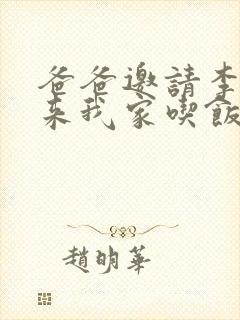 爸爸邀請李
來我家喫飯
趙明華